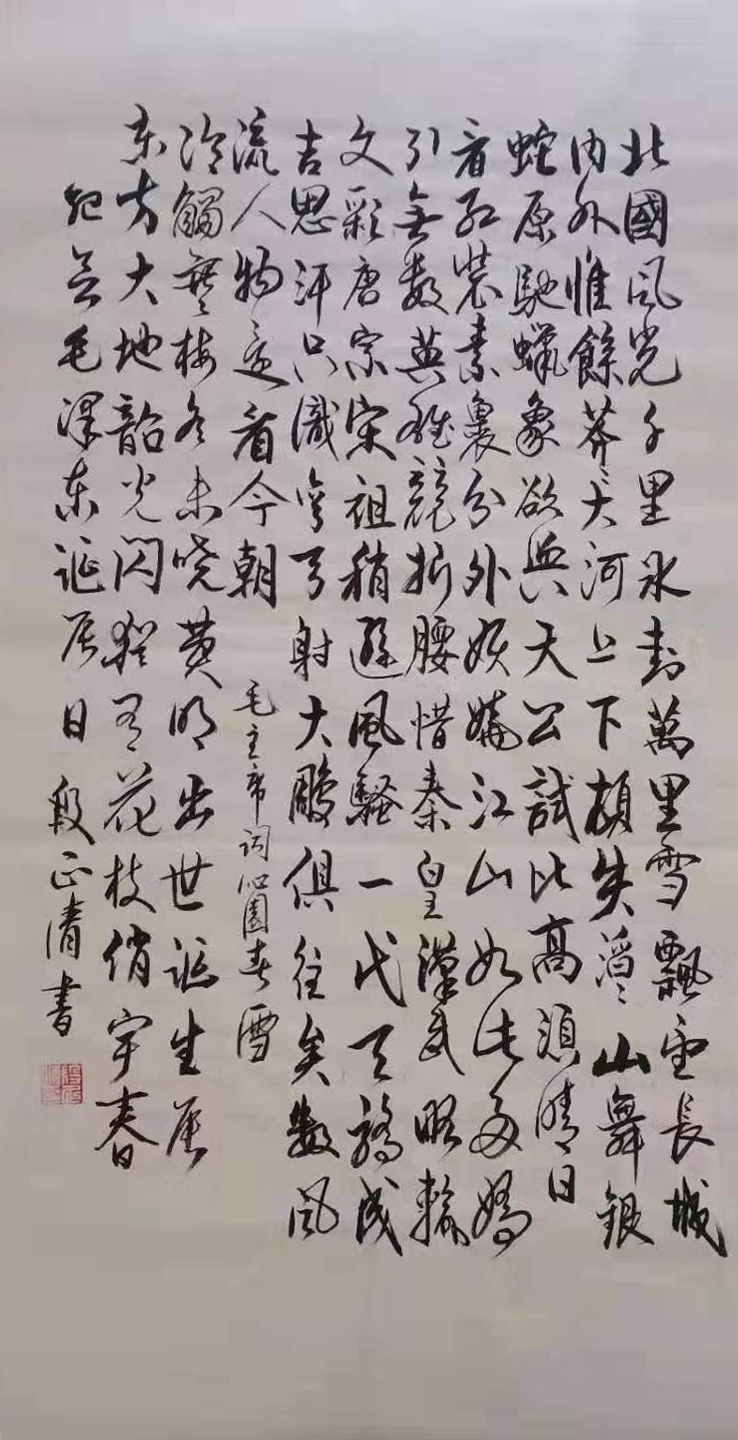 北國风光千里冰封萬里雪飄望長城
内外惟餘莽莽大河上下頓失滔滔山舞銀
蛇原馳蠟象欲與天公試比高須晴日
看红装素裹分外妖嬈江山如此多嬌
引無数英雄競折腰惜秦皇漢武略輸
文彩唐宗宋祖稍遜風騷一代天驕成
吉思汗只識弯弓射大鵰俱往矣數风
流人物还看今朝 毛主席词沁園春雪
冷觸寒梅冬未晓黄明出世诞生辰
东方大地韶光闪花枝俏宇春
纪念毛泽东诞辰日 段正清書